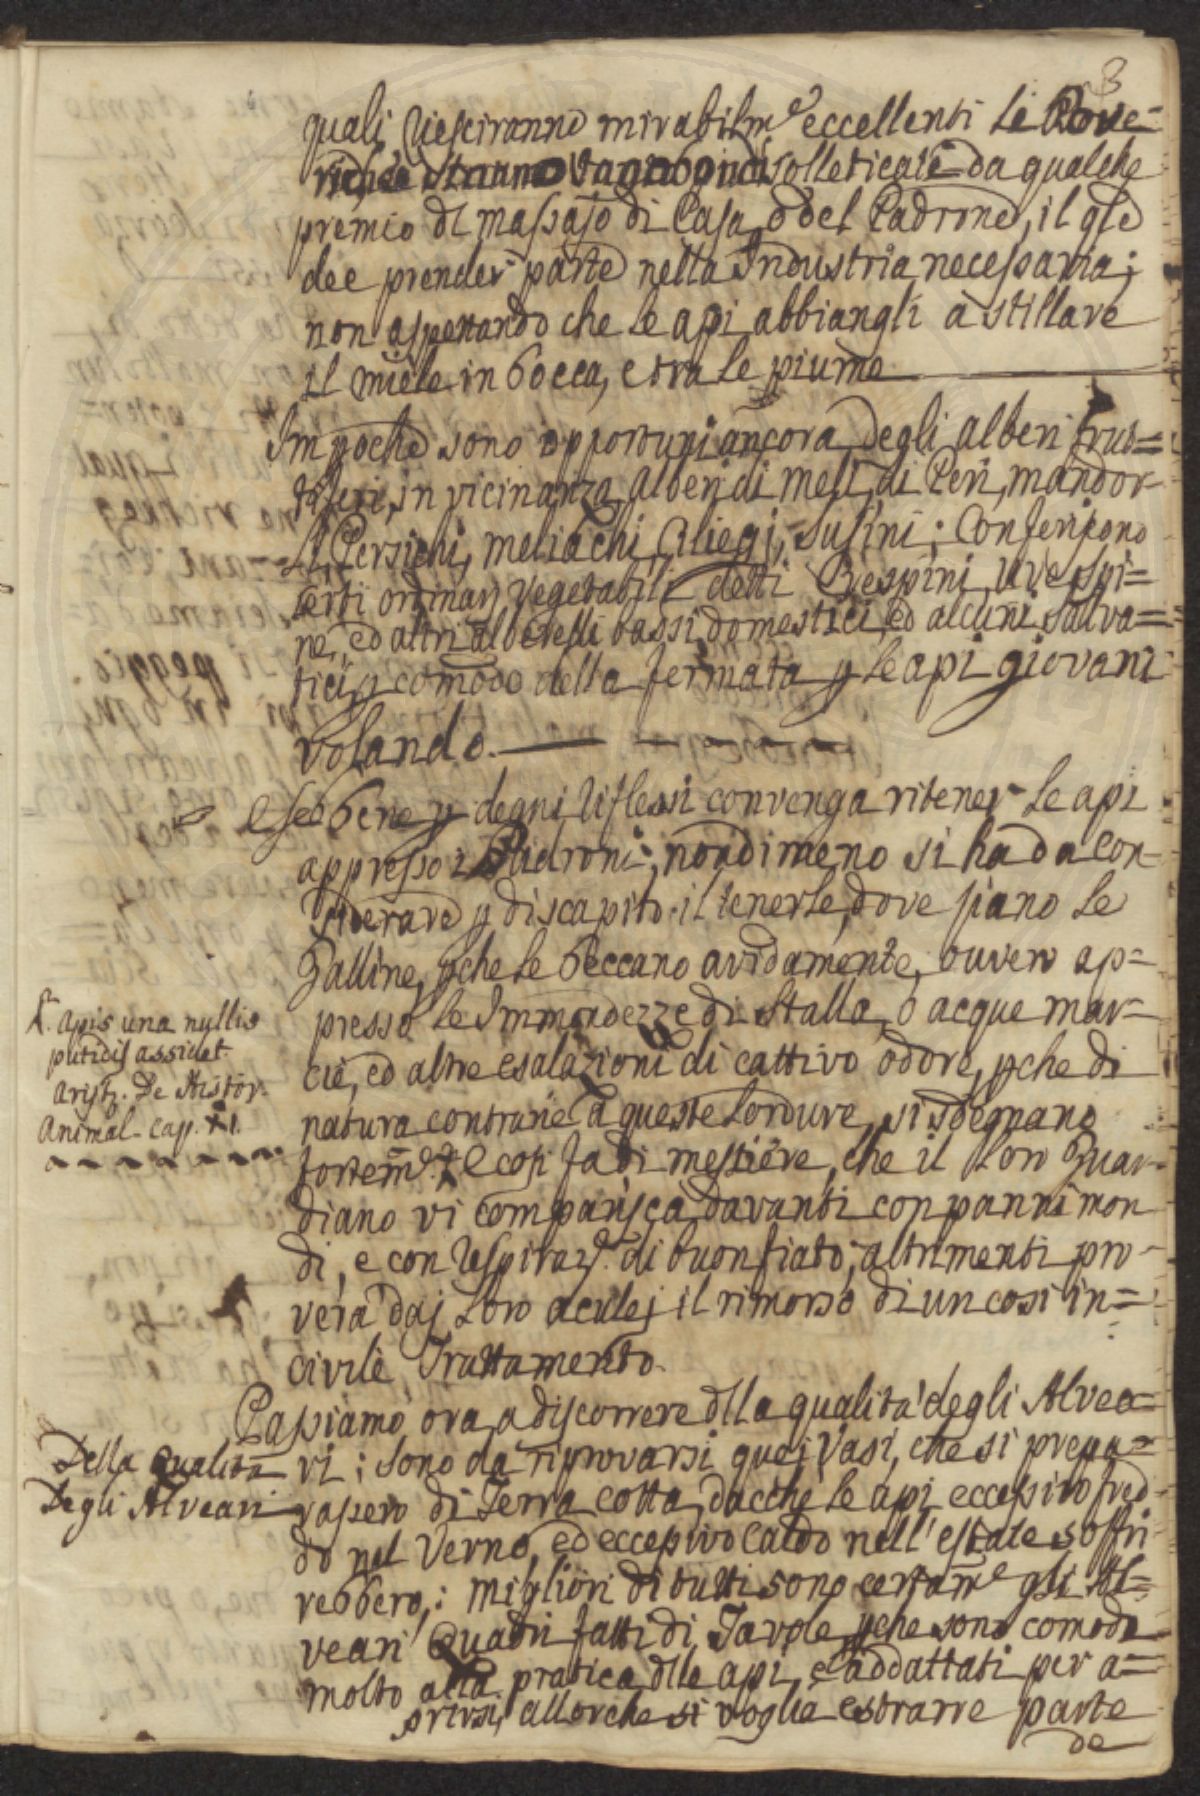 3
quali riesciranno mirabilm.e eccellenti le Pove-
solleticate da qualche
premio dl massajo di Casa, o del Padrone, il qle
dee prender parte nella Industria necessaria;
non aspettando che le api abbiangli a stillare
il miele in bocca, e tra le piume
Imperoche sono opportuni ancora degli alberi frut=
tiferi, in vicinanza alberi di meli, di Peri, mandor-
li, Persichi, meliachi, Ciliegi, Susini; Conferiscono
certi ordinarj vegetabili detti Crespini, uve spi=
ne, ed altri alberelli bassi domestici, ed alcuni salva=
tici p comodo della fermata p le api giovani
volando.
E sebbene p degni riflessi convenga ritener le api
appresso i Padroni; nondimeno si ha da con-
siderare p discapito il tenerle, dove siano le
Galline, pche le beccano avidamente, ouvero ap=
presso le Immondezze di stalla, o acque mar=
cie, ed altre esalazioni di cattivo odore, pche di
natura contrarie a queste lordure, si sdegnano
fortem.e E cosi fa di mestiere, che il loro Guar-
diano vi comparisca davanti con panni mon
di, e con respiraz.e di buon fiato; altrimenti pro-
verà daj loro aculej il rimorso di un cosi in=
civile Trattamento.
Apis una nullis
putidis assidet.
Arist. De Histor.
Animal. cap.
Passiamo ora a discorrere dlla qualità degli Alvea=
Della qualità
Degli Alveari
ri; sono da riprovarsi quej Vasi, che si prepa=
rassero di Terra cotta, dacche le api eccessivo fred
do nel Verno, ed eccessivo caldo nell'estate soffri
rebbero; migliori di tutti sono certam.e gli Al=
veari Quadri fatti di Tavole, pche sono comodi
molto alla pratica dlle api, e addattati per a=
prirsi, allorche si voglia estrarre parte
de